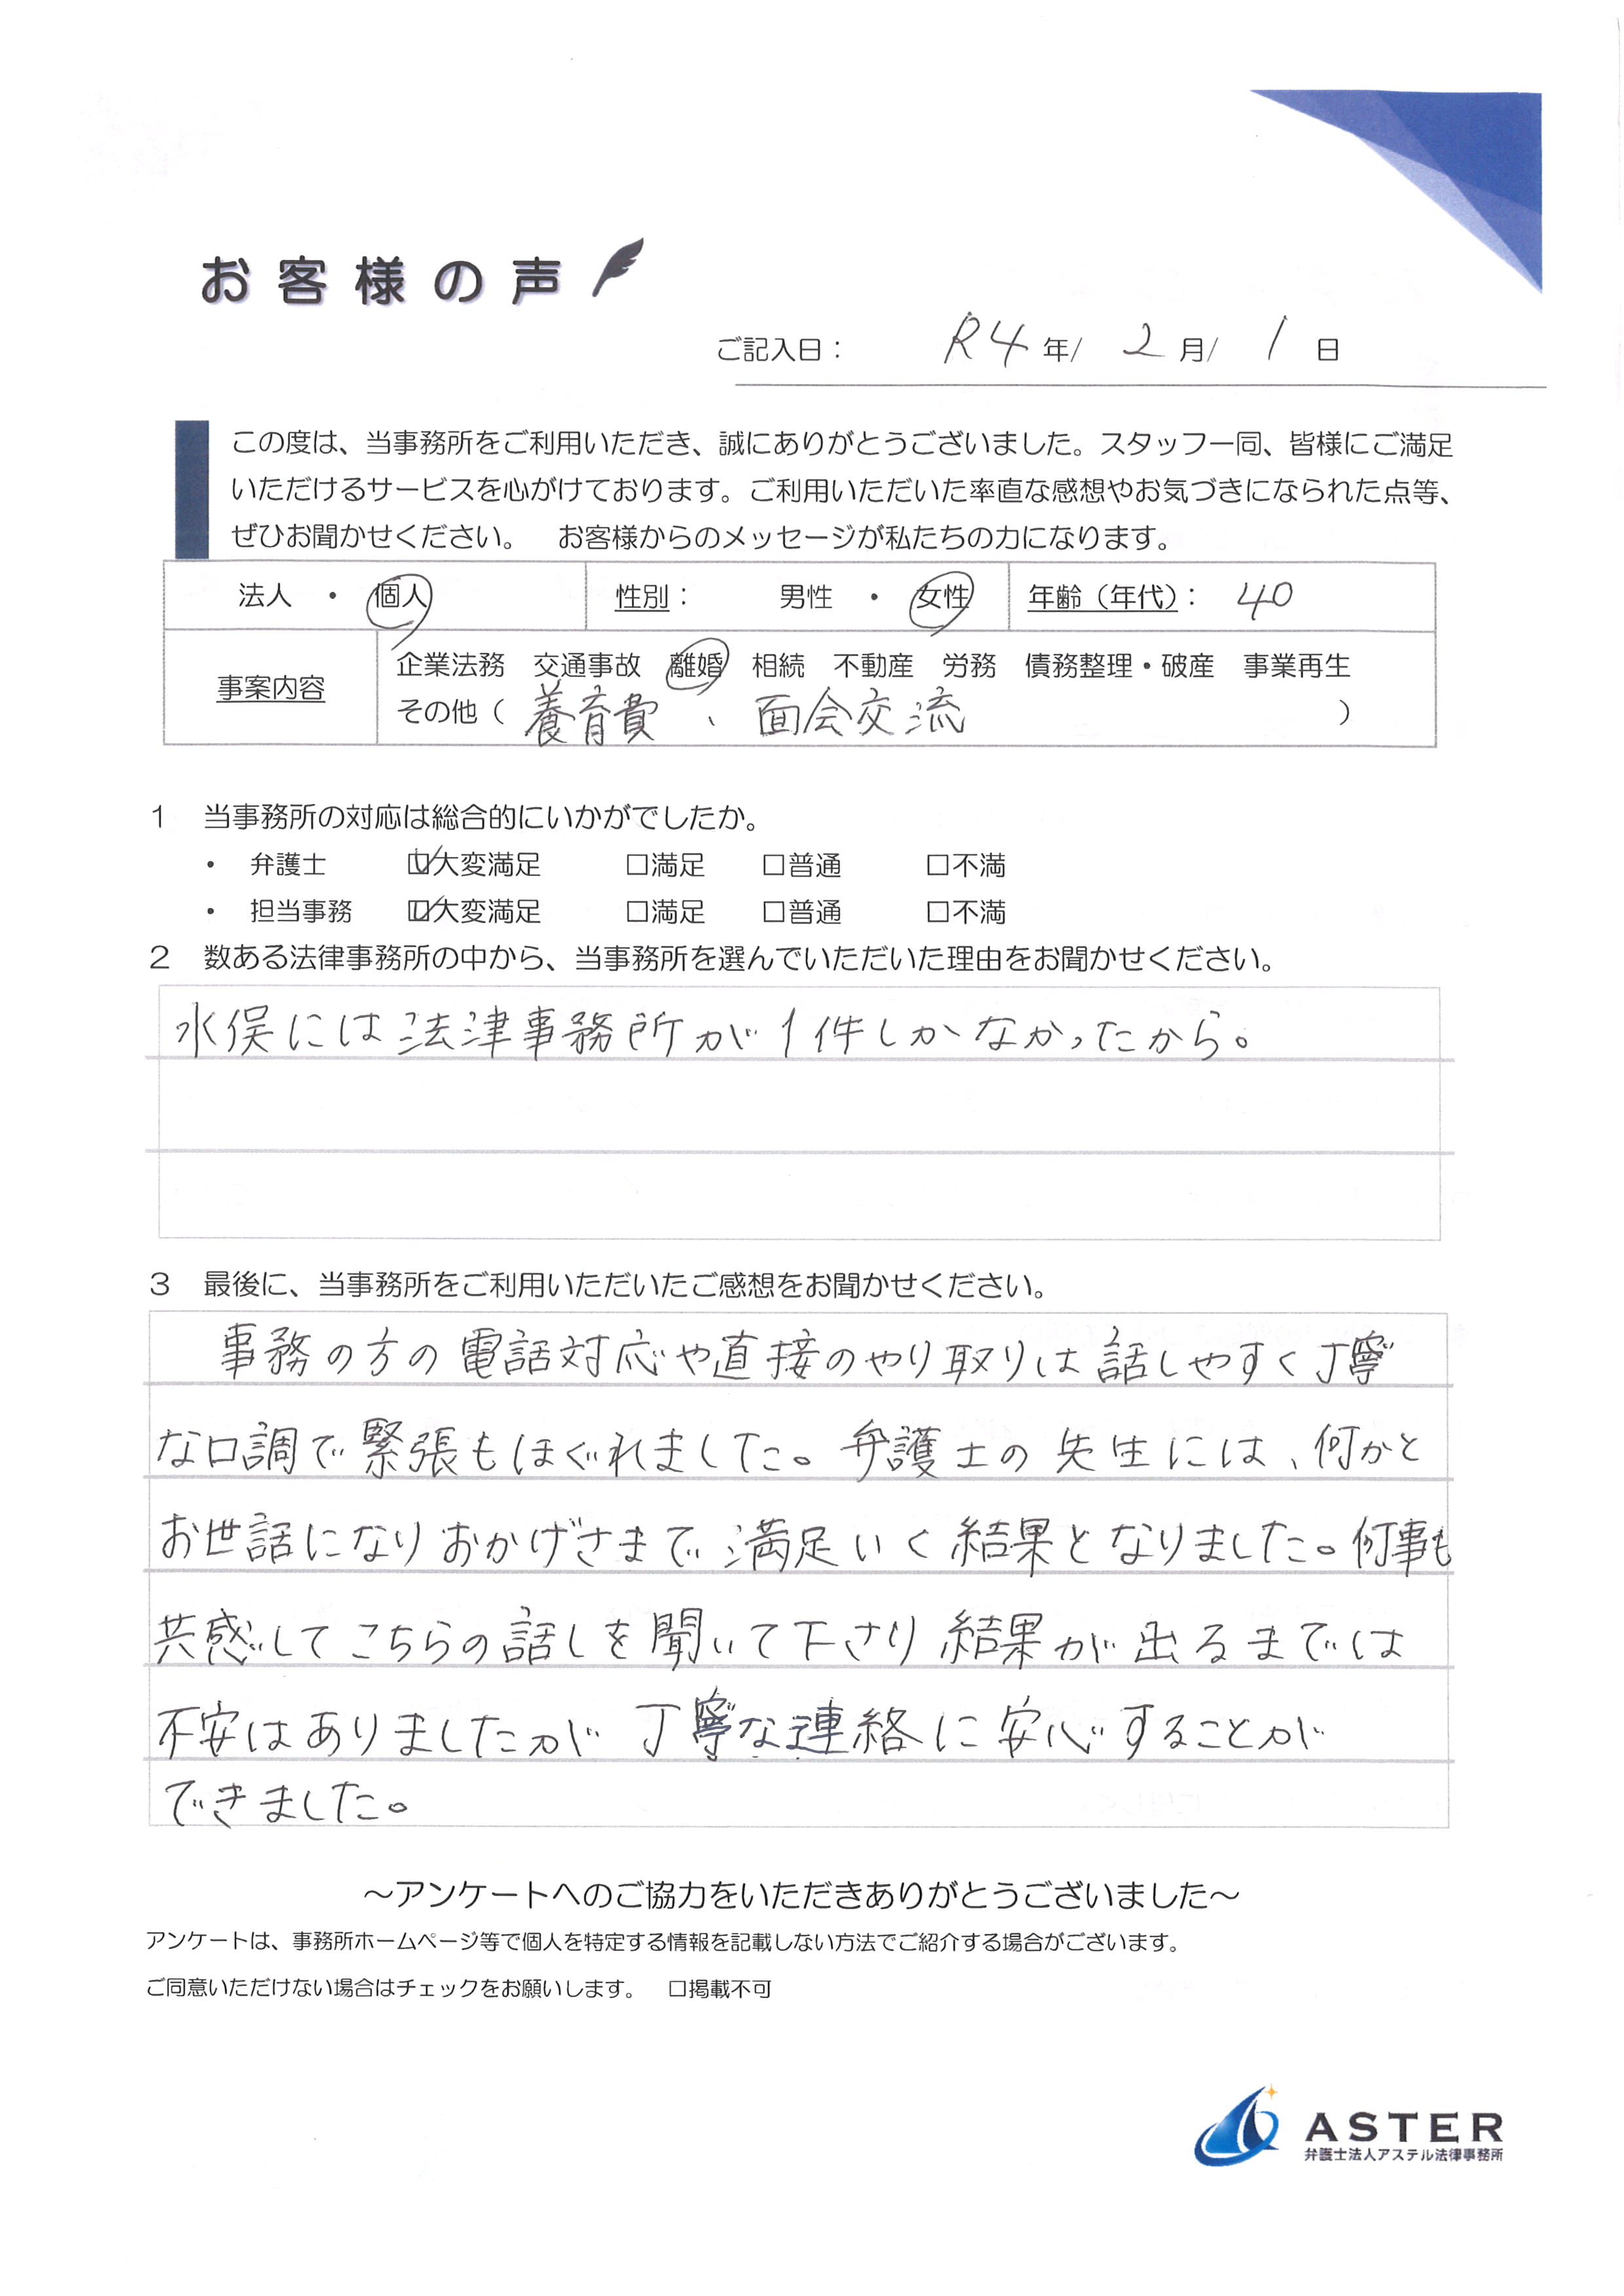 お客様の声
ご記入日： R4年/ 2月/ 1日
この度は、当事務所をご利用いただき、誠にありがとうございました。スタッフ一同、皆様にご満足
いただけるサービスを心がけております。ご利用いただいた率直な感想やお気づきになられた点等、
ぜひお聞かせください。　お客様からのメッセージが私たちの力になります。
法人 ・ 個人 性別： 男性 ・ 女性 年齢（年代）： 40
事案内容
企業法務 交通事故 離婚 相続 不動産 労務 債務整理・破産 事業再生
その他（ 養育費、面会交流 ）
1 当事務所の対応は総合的にいかがでしたか。
・ 弁護士 ☑大変満足 □満足 □普通 □不満
・ 担当事務 ☑大変満足 □満足 □普通 □不満
2 数ある法律事務所の中から、当事務所を選んでいただいた理由をお聞かせください。
水俣には法津事務所が1件しかなかったから。
3 最後に、当事務所をご利用いただいたご感想をお聞かせください。
事務の方の電話対応や直接のやり取りは話しやすく丁寧
な口調で緊張もほぐれました。弁護士の先生には、何かと
お世話になりおかげさまで満足いく結果となりました。何事も
共感してこちらの話しを聞いて下さり結果が出るまでは
不安はありましたが丁寧な連絡に安心することが
できました。
～アンケートへのご協力をいただきありがとうございました～
アンケートは、事務所ホームページ等で個人を特定する情報を記載しない方法でご紹介する場合がございます。
ご同意いただけない場合はチェックをお願いします。　□掲載不可
ASTER
弁護士法人アステル法律事務所